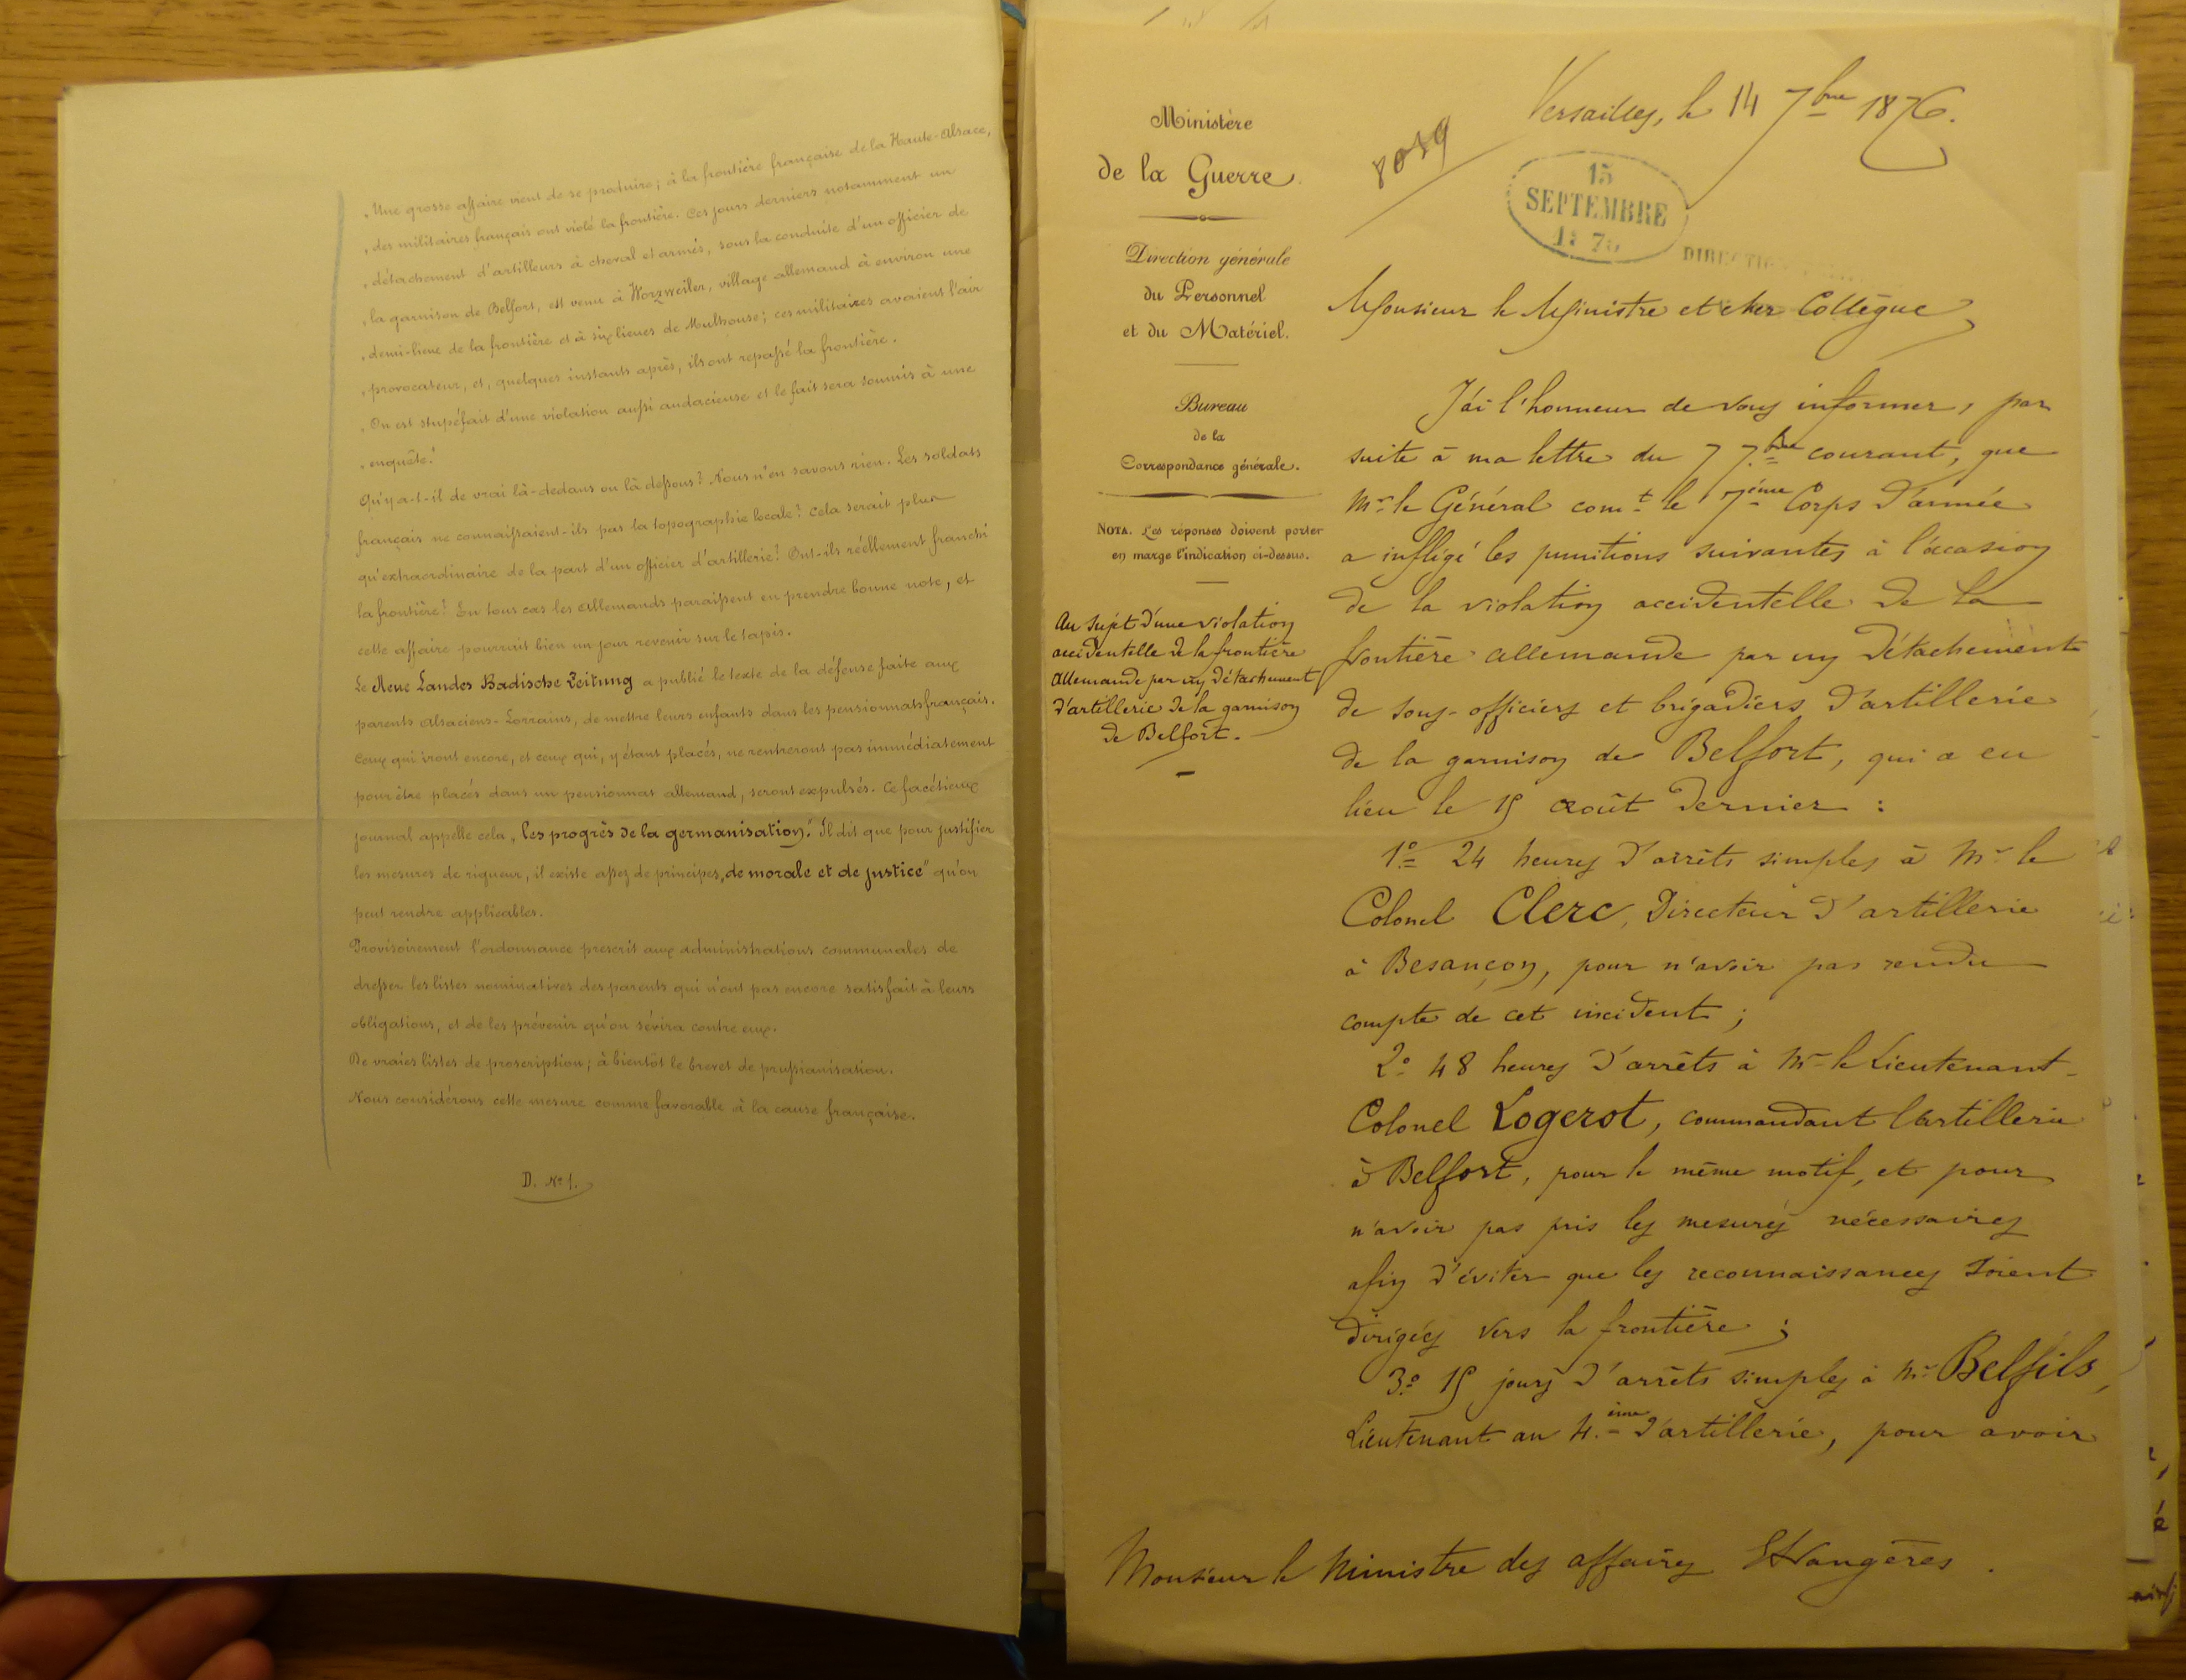 „Une grosse affaire vient de se produire; à la frontière française de la Haute-Alsace,
„des militaires français ont violé la frontière. Ces jours derniers notamment un
„détachement d'artilleurs à cheval et armés, sous la conduite d'un officier de
„la garnison de Belfort, est venu à Worzweiler, village allemand à environ une
„demi-lieue de la frontière et à six lieues de Mulhouse; ces militaires avaient l'air
„provocateur, et, quelques instants après, ils ont repassé la frontière.
„On est stupéfait d'une violation aussi audacieuse et le fait sera soumis à une
„enquête."
Qu'y a-t-il de vrai là-dedans ou là dessous? Nous n'en savons rien. Les soldats
français ne connaissaient-ils pas la topographie locale? Cela serait plus
qu'extraordinaire de la part d'un officier d'artillerie! Ont-ils réellement franchi
la frontière? En tous cas les Allemands paraissent en prendre bonne note, et
cette affaire pourrait bien un jour revenir sur le tapis.
Le Neue Landes Badische Zeitung a publié le texte de la défense faite aux
parents Alsaciens-Lorrains, de mettre leurs enfants dans les pensionnats français.
Ceux qui iront encore, et ceux qui, y étant placés, ne rentreront pas immédiatement
pour être placés dans un pensionnat allemand, seront expulsés. Ce facétieux
journal appelle cela „les progrès de la germanisation." Il dit que pour justifier
les mesures de rigueur, il existe assez de principes „de morale et de justice" qu'on
peut rendre applicables.
Provisoirement l'ordonnance prescrit aux administrations communales de
dresser les listes nominatives des parents qui n'ont pas encore satisfait à leurs
obligations, et de les prévenir qu'on sévira contre eux.
De vraies listes de proscription; à bientôt le brevet de prussianisation.
Nous considérons cette mesure comme favorable à la cause française.
D. No 1.
Ministère
de la Guerre
Direction générale
du Personnel
et du Matériel.
Bureau
de la
Correspondance générale.
NOTA. Les réponses doivent porter
en marge l'indication ci-dessus.
Au sujet d'une violation
accidentelle de la frontière
Allemande par un détachement
d'artillerie de la garnison
de Belfort.
Versailles, le 14 7bre 1876.
8019
15
SEPTEMBRE
Monsieur le Ministre et cher Collègue,
J'ai l'honneur de vous informer, par
suite à ma lettre du 7 7bre courant, que
Mr le Général comt le 7ème Corps d'armée
a infligé les punitions suivantes à l'occasion
de la violation accidentelle de la
frontière allemande par un détachement
de sous-officiers et brigadiers d'artillerie
de la garnison de Belfort, qui a eu
lieu le 15 août dernier :
1o 24 heures d'arrêts simples à Mr le
Colonel Clerc, Directeur d'artillerie
à Besançon, pour n'avoir pas rendu
compte de cet incident ;
2o 48 heures d'arrêts à Mr le Lieutenant-
Colonel Logerot, commandant l'artillerie
à Belfort, pour le même motif, et pour
n'avoir pas pris les mesures nécessaires
afin d'éviter que les reconnaissances soient
dirigées vers la frontière ;
3o 15 jours d'arrêts simples à Mr Belfils,
Lieutenant au 4ème d'artillerie, pour avoir
Monsieur le Ministre des affaires Etrangères.